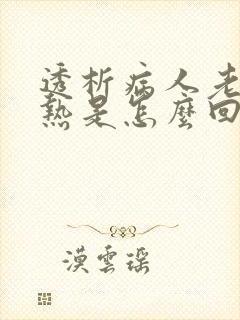 透析病人老
熱是怎麼回
漠雲瑶